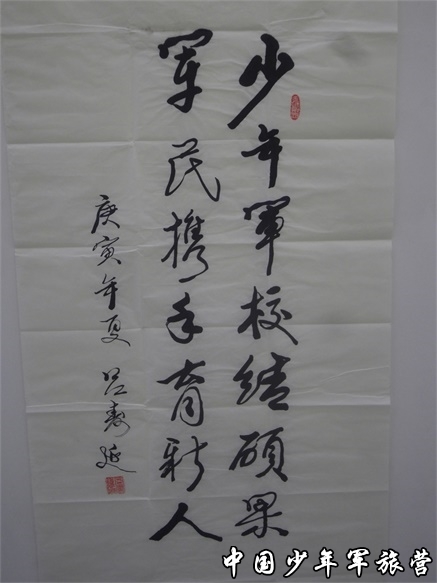 少年軍校结硕果
军民携手育新人
庚寅年夏 吕寿延
中国少年军旅营